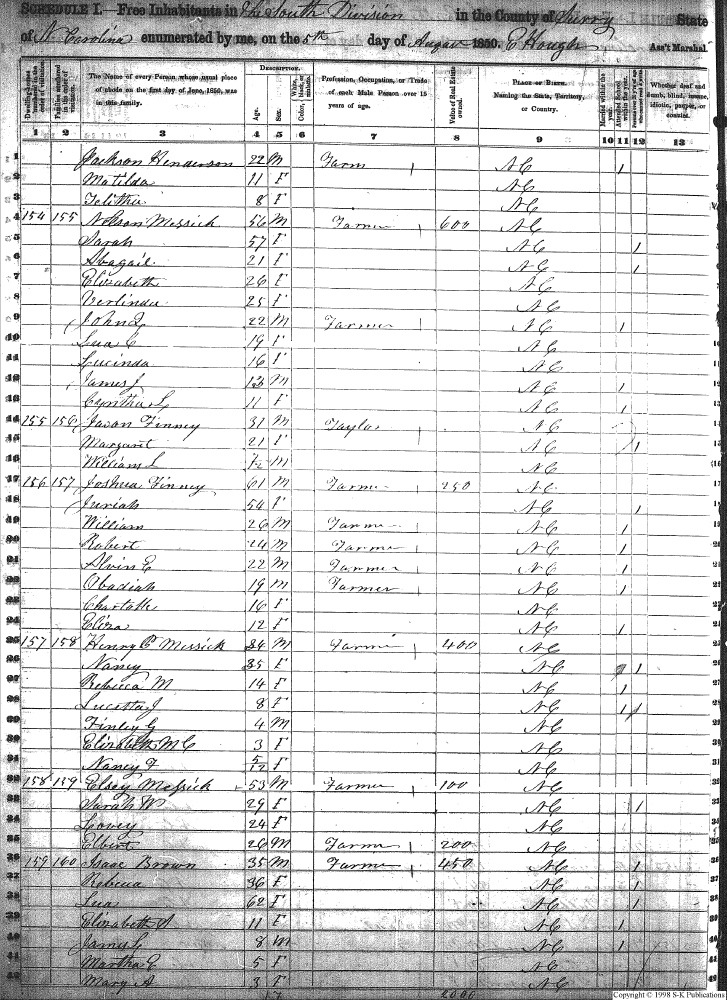 SCHEDULE I.—Free Inhabitants in the South Division in the County of Surry State
of N. Carolina enumerated by me, on the 5th day of August 1850. E Hough Ass't Marshal.
Dwelling-houses numbered in the order of visitation. Families numbered in the order of visitation. The Name of every Person whose usual place of abode on the first day of June, 1850, was in this family. DESCRIPTION. Age. Sex. White, black, or mulatto. Color, Profession, Occupation, or Trade of each Male Person over 15 years of age. Value of Real Estate owned. PLACE OF BIRTH. Naming the State, Territory, or Country. Married within the year. Attended School within the year. Whether deaf and dumb, blind, insane, idiotic, pauper, or convict.
1 2 3 4 5 6 7 8 9 10 11 12 13
1 Jackson Henderson 22 M Farm NC 1
2 Matilda 11 F NC
3 Telitha 8 F NC
4 154 155 Nelson Messick 56 M Farmer 600 NC
5 Sarah 57 F NC 1
6 Abagail 21 F NC 1
7 Elizabeth 26 F NC
8 Verlinda 25 F NC
9 John 22 M Farmer NC 1
10 19 F NC
11 Lucinda 16 F NC
12 James J 13 M NC 1
13 Cyntha L 11 F NC 1
14 155 156 Jason Finney 31 M Taylor NC
15 Margaret 21 F NC 1
16 William L M NC
17 156 157 Joshua Finney 61 M Farmer 250 NC
18 54 F NC 1
19 William 26 M Farmer NC 1
20 Robert 24 M Farmer NC 1
21 Alvin E 22 M Farmer NC 1
22 Obadiah 19 M Farmer NC 1
23 Charlotte 16 F NC
24 Eliza 12 F NC 1
25 157 158 Henry C Messick 34 M Farmer 400 NC
26 Nancy 35 F NC 1
27 Rebecca M 14 F NC 1
28 J 8 F NC 1
29 Finley G 4 M NC
30 Elizabeth M C 3 F NC
31 Nancy F 5/12 F NC
32 158 159 Messick 53 M Farmer 100 NC
33 Sarah W 29 F NC 1
34 Lovey 24 F NC
35 Elbert 26 M Farmer 200 NC
36 159 160 Isaac Brown 35 M Farmer 450 NC 1
37 Rebecca 36 F NC 1
38 62 F NC 1
39 Elizabeth 11 F NC 1
40 James 8 M NC 1
41 Martha E 5 F NC
42 Mary A 3 F NC
2000
Copyright © 1998 S-K Publications